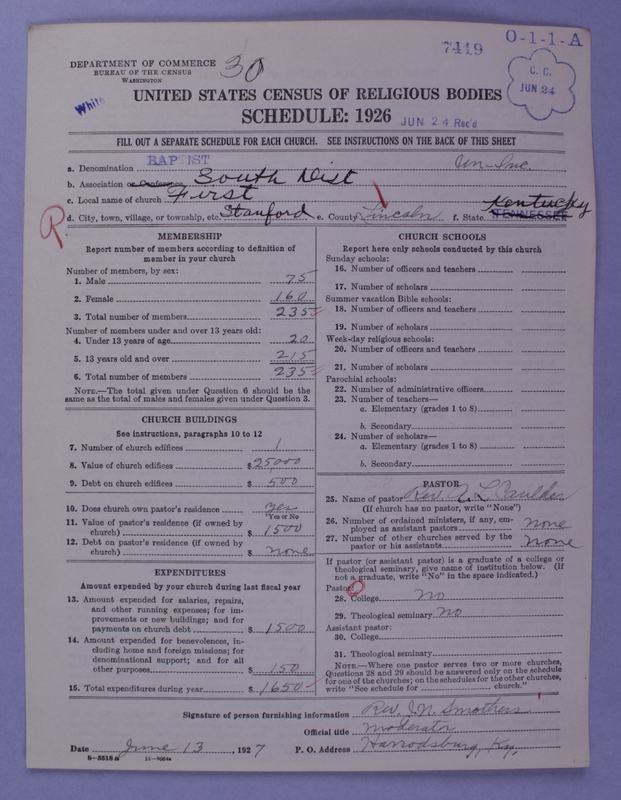 7419 O-1-1-A
DEPARTMENT OF COMMERCE
BUREAU OF THE CENSUS
WASHINGTON
30
C. C.
JUN 24
White
UNITED STATES CENSUS OF RELIGIOUS BODIES
SCHEDULE: 1926 JUN 24 Rec'd
FILL OUT A SEPARATE SCHEDULE FOR EACH CHURCH. SEE INSTRUCTIONS ON THE BACK OF THIS SHEET
a. Denomination BAPTIST Un-Inc.
b. Association or Conference South Dist
c. Local name of church First
R. d. City, town, village, or township, etc. Stanford e. County Lincoln f. State Kentucky TENNESSEE
MEMBERSHIP
Report number of members according to definition of
member in your church
Number of members, by sex:
1. Male 75
2. Female 160
3. Total number of members 235
Number of members under and over 13 years old:
4. Under 13 years of age 20
5. 13 years old and over 215
6. Total number of members 235
NOTE.—The total given under Question 6 should be the
same as the total of males and females given under Question 3.
CHURCH BUILDINGS
See instructions, paragraphs 10 to 12
7. Number of church edifices 1
8. Value of church edifices $25,000
9. Debt on church edifices $ 500
10. Does church own pastor's residence yes
Yes or No
11. Value of pastor's residence (if owned by
church) $ 1500
12. Debt on pastor's residence (if owned by
church) $ none
EXPENDITURES
Amount expended by your church during last fiscal year
13. Amount expended for salaries, repairs,
and other running expenses; for im-
provements or new buildings; and for
payments on church debt $ 1500
14. Amount expended for benevolences, in-
cluding home and foreign missions; for
denominational support; and for all
other purposes $ 150
15. Total expenditures during year $ 1650
CHURCH SCHOOLS
Report here only schools conducted by this church
Sunday schools:
16. Number of officers and teachers
17. Number of scholars
Summer vacation Bible schools:
18. Number of officers and teachers
19. Number of scholars
Week-day religious schools:
20. Number of officers and teachers
21. Number of scholars
Parochial schools:
22. Number of administrative officers
23. Number of teachers—
a. Elementary (grades 1 to 8)
b. Secondary
24. Number of scholars—
a. Elementary (grades 1 to 8)
b. Secondary
PASTOR
25. Name of pastor Rev. L. Caulder
(If church has no pastor, write "None")
26. Number of ordained ministers, if any, em-
ployed as assistant pastors none
27. Number of other churches served by the
pastor or his assistants none
If pastor (or assistant pastor) is a graduate of a college or
theological seminary, give name of institution below. (If
not a graduate, write "No" in the space indicated.)
Pastor:
28. College no
29. Theological seminary no
Assistant pastor:
30. College
31. Theological seminary
NOTE.—Where one pastor serves two or more churches,
Questions 28 and 29 should be answered only on the schedule
for one of the churches; on the schedules for the other churches,
write "See schedule for church."
Signature of person furnishing information Rev. J. N. Smothers
Official title Moderator
Date June 13, 1927 P. O. Address Harrodsburg, Ky.
8-5518 a 11-9064a